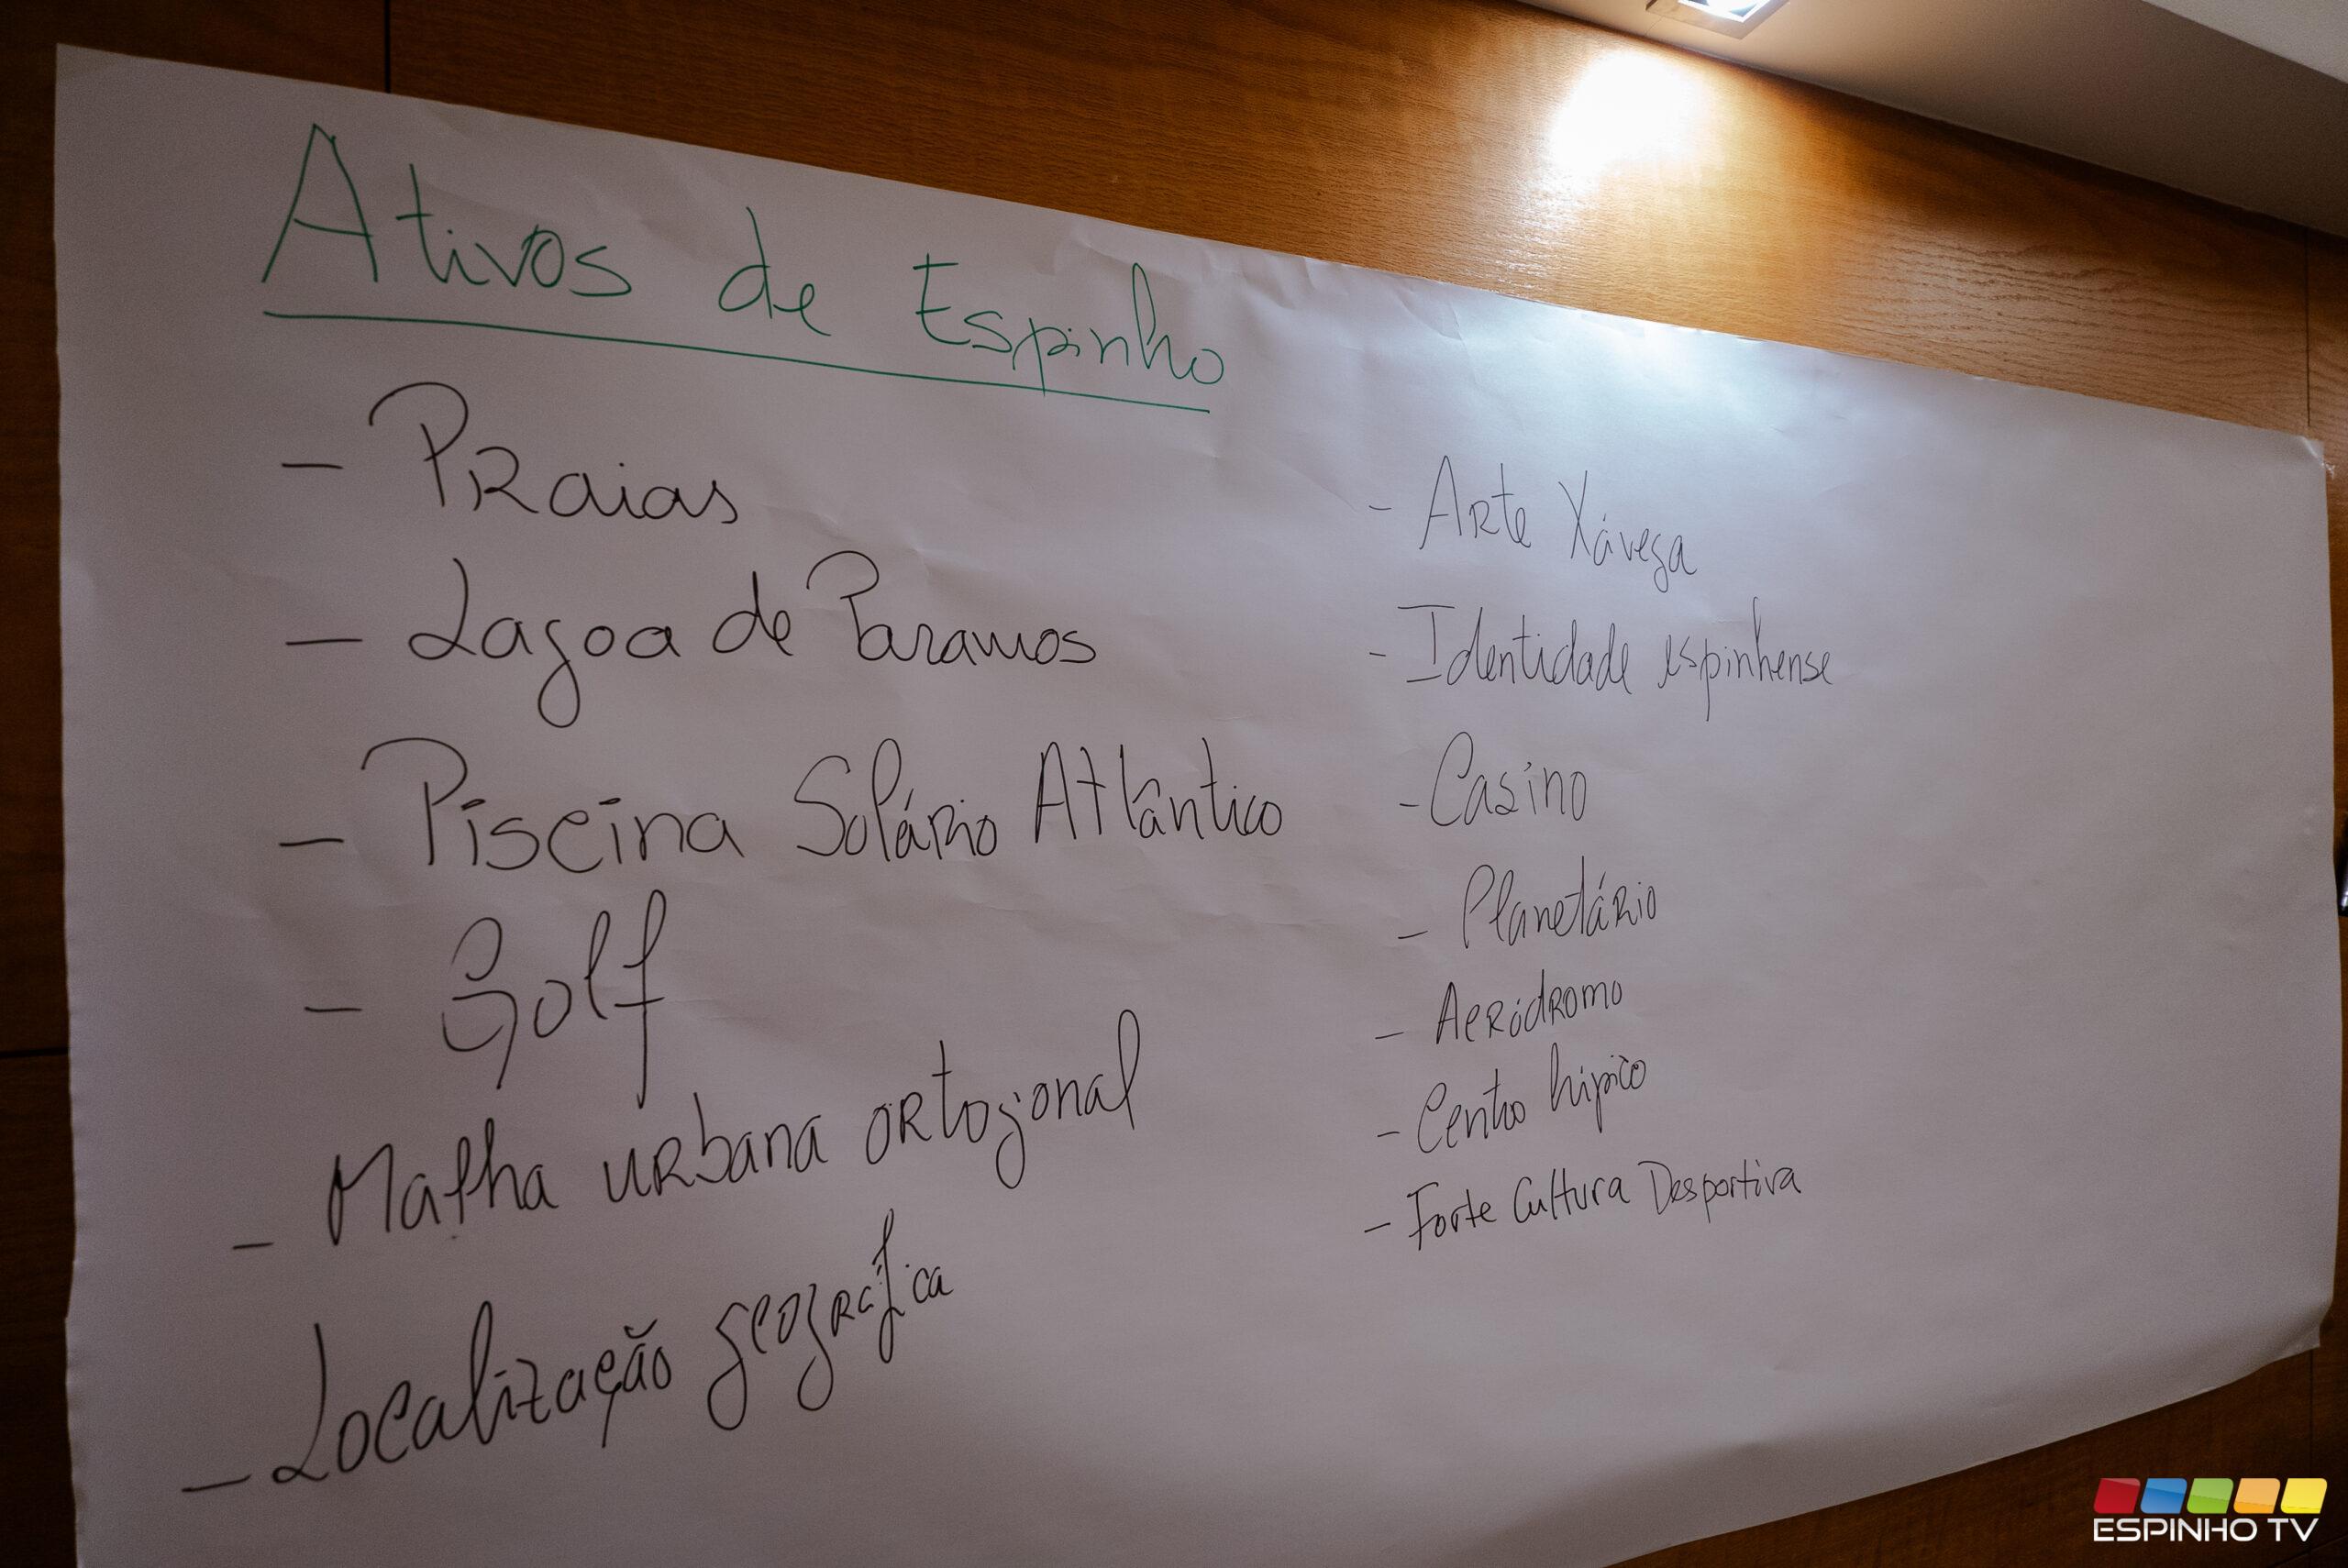 Ativos de Espinho
- Praias
- Lagoa de Paramos
- Piscina Solário Atlântico
- Golf
- Malha urbana ortogonal
- Localização geográfica
- Arte Xávega
- Identidade espinhense
- Casino
- Planetário
- Aeródromo
- Centro hípico
- Forte Cultura Desportiva
ESPINHO TV